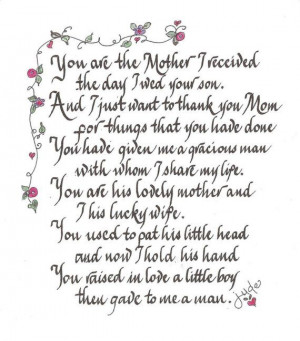 You are the Mother I received
the day I wed your son.
And I just want to thank you Mom
for things that you have done
You have given me a gracious man
with whom I share my life.
You are his lovely mother and
I his lucky wife.
You used to pat his little head
and now I hold his hand
You raised in love a little boy
then gave to me a man.
Jude